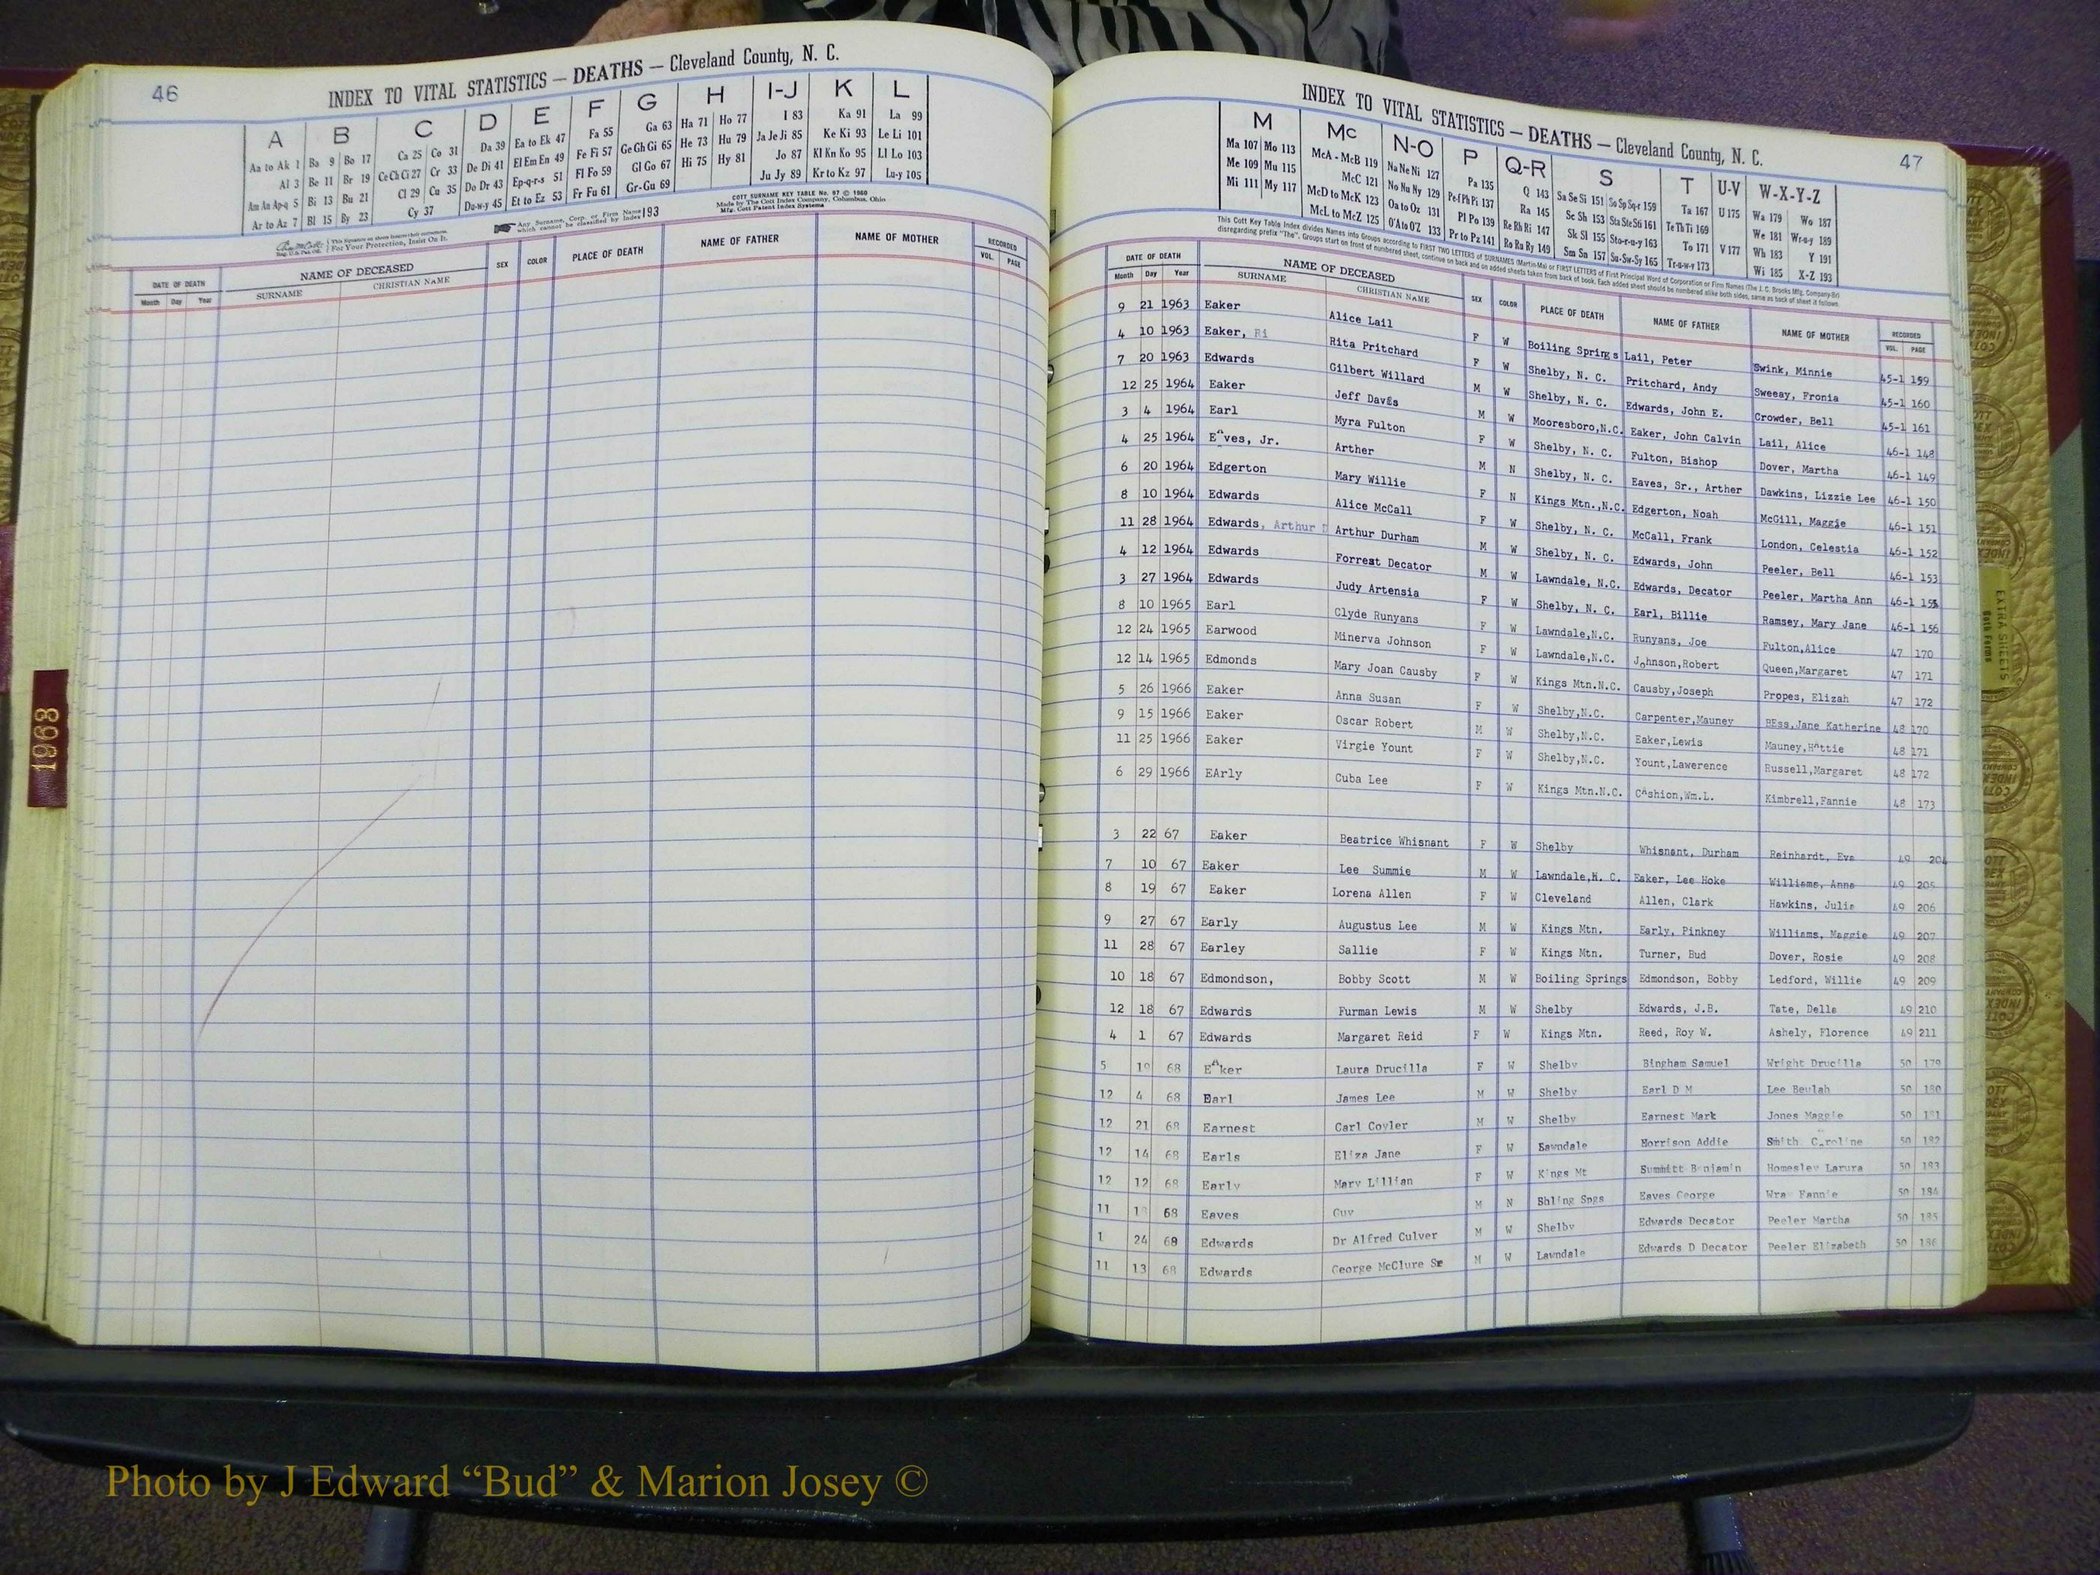 46
INDEX TO VITAL STATISTICS — DEATHS — Cleveland County, N. C.
A B C D E F G H I-J K L
Aa to Ak 1 Ba 9 Bo 17 Ca 25 Co 31 Da 39 Ea to Ek 47 Fa 55 Ga 63 Ha 71 Ho 77 I 83 Ka 91 La 99
Al 3 Be 11 Br 19 Ce Ch Ci 27 Cr 33 De Di 41 El Em En 49 Fe Fi 57 Ge Gh Gi 65 He 73 Hu 79 Ja Je Ji 85 Ke Ki 93 Le Li 101
Am An Ap-q 5 Bi 13 Bu 21 Cl 29 Cu 35 Do Dr 43 Ep-q-r-s 51 Fl Fo 59 Gl Go 67 Hi 75 Hy 81 Jo 87 Kl Kn Ko 95 Ll Lo 103
Ar to Az 7 Bl 15 By 23 Cy 37 Du-w-y 45 Et to Ez 53 Fr Fu 61 Gr-Gu 69 Ju Jy 89 Kr to Kz 97 Lu-y 105
This Signature on sheets insures their correctness. For Your Protection, Insist On It.
Any Surname, Corp. or Firm Name which cannot be classified by Index 193
COTT SURNAME KEY TABLE No. 97 © 1960
Made by The Cott Index Company, Columbus, Ohio
Mfg. Cott Patent Index Systems
DATE OF DEATH NAME OF DECEASED SEX COLOR PLACE OF DEATH NAME OF FATHER NAME OF MOTHER RECORDED
Month Day Year SURNAME CHRISTIAN NAME VOL. PAGE
1968
47
INDEX TO VITAL STATISTICS — DEATHS — Cleveland County, N. C.
M Mc N-O P Q-R S T U-V W-X-Y-Z
Ma 107 Mo 113 McA - McB 119 Na Ne Ni 127 Pa 135 Q 143 Sa Se Si 151 So Sp Sq-r 159 Ta 167 U 175 Wa 179 Wo 187
Me 109 Mu 115 McC 121 No Nu Ny 129 Pe-f Ph Pi 137 Ra 145 Sc Sh 153 Sta Ste Sti 161 Te Th Ti 169 We 181 Wr-u-y 189
Mi 111 My 117 McD to McK 123 Oa to Oz 131 Pl Po 139 Re Rh Ri 147 Sk Sl 155 Sto-r-u-y 163 To 171 V 177 Wh 183 Y 191
McL to McZ 125 O'A to O'Z 133 Pr to Pz 141 Ro Ru Ry 149 Sm Sn 157 Su-Sw-Sy 165 Tr-u-w-y 173 Wi 185 X-Z 193
This Cott Key Table Index divides Names into Groups according to FIRST TWO LETTERS of SURNAMES (Martin-Ma) or FIRST LETTERS of First Principal Word of Corporation or Firm Names (The J. C. Brooks Mfg. Company-Br)
disregarding prefix "The". Groups start on front of numbered sheet, continue on back and on added sheets taken from back of book. Each added sheet should be numbered alike both sides, same as back of sheet it follows
DATE OF DEATH NAME OF DECEASED SEX COLOR PLACE OF DEATH NAME OF FATHER NAME OF MOTHER RECORDED
Month Day Year SURNAME CHRISTIAN NAME VOL. PAGE
9 21 1963 Eaker Alice Lail F W Boiling Springs Lail, Peter Swink, Minnie 45-1 159
4 10 1963 Eaker, Ri Rita Pritchard F W Shelby, N. C. Pritchard, Andy Sweeay, Fronia 45-1 160
7 20 1963 Edwards Gilbert Willard M W Shelby, N. C. Edwards, John E. Crowder, Bell 45-1 161
12 25 1964 Eaker Jeff Davis M W Mooresboro,N.C. Eaker, John Calvin Lail, Alice 46-1 148
3 4 1964 Earl Myra Fulton F W Shelby, N. C. Fulton, Bishop Dover, Martha 46-1 149
4 25 1964 EAves, Jr. Arther M N Shelby, N. C. Eaves, Sr., Arther Dawkins, Lizzie Lee 46-1 150
6 20 1964 Edgerton Mary Willie F N Kings Mtn.,N.C. Edgerton, Noah McGill, Maggie 46-1 151
8 10 1964 Edwards Alice McCall F W Shelby, N. C. McCall, Frank London, Celestia 46-1 152
11 28 1964 Edwards, Arthur D Arthur Durham M W Shelby, N. C. Edwards, John Peeler, Bell 46-1 153
4 12 1964 Edwards Forrest Decator M W Lawndale, N.C. Edwards, Decator Peeler, Martha Ann 46-1 155
3 27 1964 Edwards Judy Artensia F W Shelby, N. C. Earl, Billie Ramsey, Mary Jane 46-1 156
8 10 1965 Earl Clyde Runyans F W Lawndale,N.C. Runyans, Joe Fulton,Alice 47 170
12 24 1965 Earwood Minerva Johnson F W Lawndale,N.C. Johnson,Robert Queen,Margaret 47 171
12 14 1965 Edmonds Mary Joan Causby F W Kings Mtn.N.C. Causby,Joseph Propes, Elizah 47 172
5 26 1966 Eaker Anna Susan F W Shelby,N.C. Carpenter,Mauney BEss,Jane Katherine 48 170
9 15 1966 Eaker Oscar Robert M W Shelby,N.C. Eaker,Lewis Mauney,HAttie 48 171
11 25 1966 Eaker Virgie Yount F W Shelby,N.C. Yount,Lawerence Russell,Margaret 48 172
6 29 1966 EArly Cuba Lee F W Kings Mtn.N.C. CAshion,Wm.L. Kimbrell,Fannie 48 173
3 22 67 Eaker Beatrice Whisnant F W Shelby Whisnant, Durham Reinhardt, Eva 49 204
7 10 67 Eaker Lee Summie M W Lawndale,N. C. Eaker, Lee Hoke Williams, Anna 49 205
8 19 67 Eaker Lorena Allen F W Cleveland Allen, Clark Hawkins, Julia 49 206
9 27 67 Early Augustus Lee M W Kings Mtn. Early, Pinkney Williams, Maggie 49 207
11 28 67 Earley Sallie F W Kings Mtn. Turner, Bud Dover, Rosie 49 208
10 18 67 Edmondson, Bobby Scott M W Boiling Springs Edmondson, Bobby Ledford, Willie 49 209
12 18 67 Edwards Furman Lewis M W Shelby Edwards, J.B. Tate, Della 49 210
4 1 67 Edwards Margaret Reid F W Kings Mtn. Reed, Roy W. Ashely, Florence 49 211
5 19 68 EAker Laura Drucilla F W Shelby Bingham Samuel Wright Drucilla 50 179
12 4 68 Earl James Lee M W Shelby Earl D M Lee Beulah 50 180
12 21 68 Earnest Carl Coyler M W Shelby Earnest Mark Jones Maggie 50 181
12 14 68 Earls Eliza Jane F W Lawndale Morrison Addie Smith Caroline 50 182
12 12 68 Early Mary Lillian F W Kings Mt Summitt Benjamin Homesley Larura 50 183
11 68 Eaves Guy M N Bhling Spgs Eaves George Wray Fannie 50 184
1 24 68 Edwards Dr Alfred Culver M W Shelby Edwards Decator Peeler Martha 50 185
11 13 68 Edwards George McClure Sr M W Lawndale Edwards D Decator Peeler Elizabeth 50 186
EXTRA SHEETS
Both Forms
Photo by J Edward “Bud” & Marion Josey ©